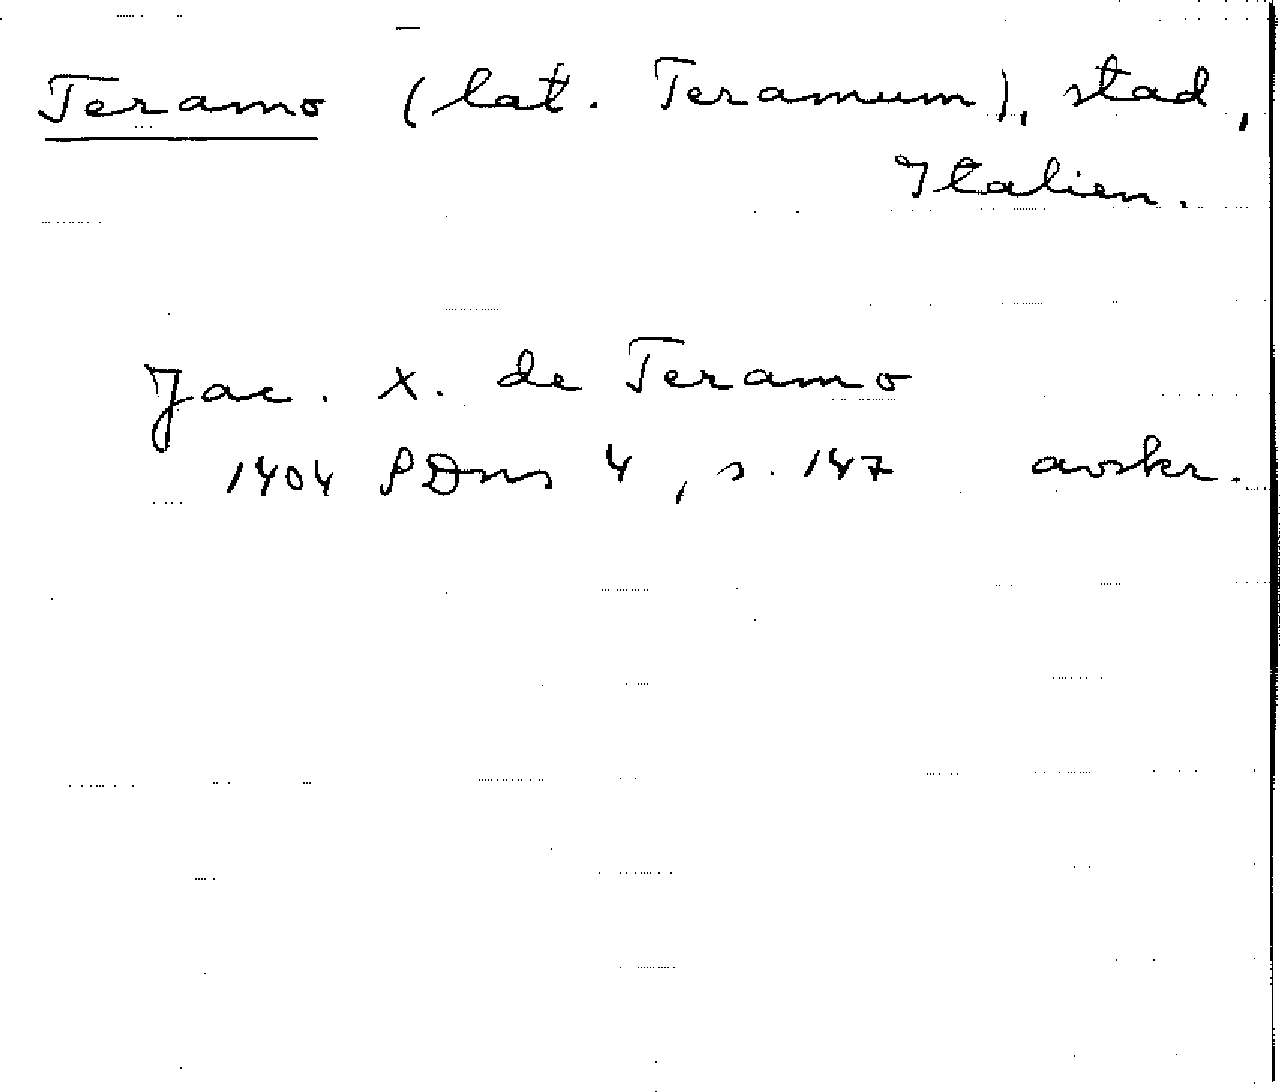 Teramo (lat. Teramum), stad,
Italien.
Jac. X. de Teramo
1404 PDms 4, s. 147 avskr.